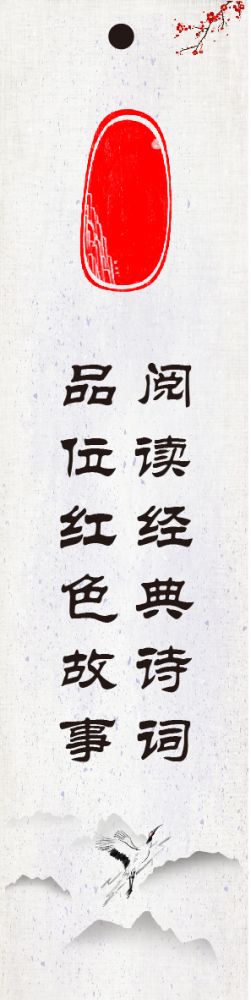 阅读经典诗词
品位红色故事